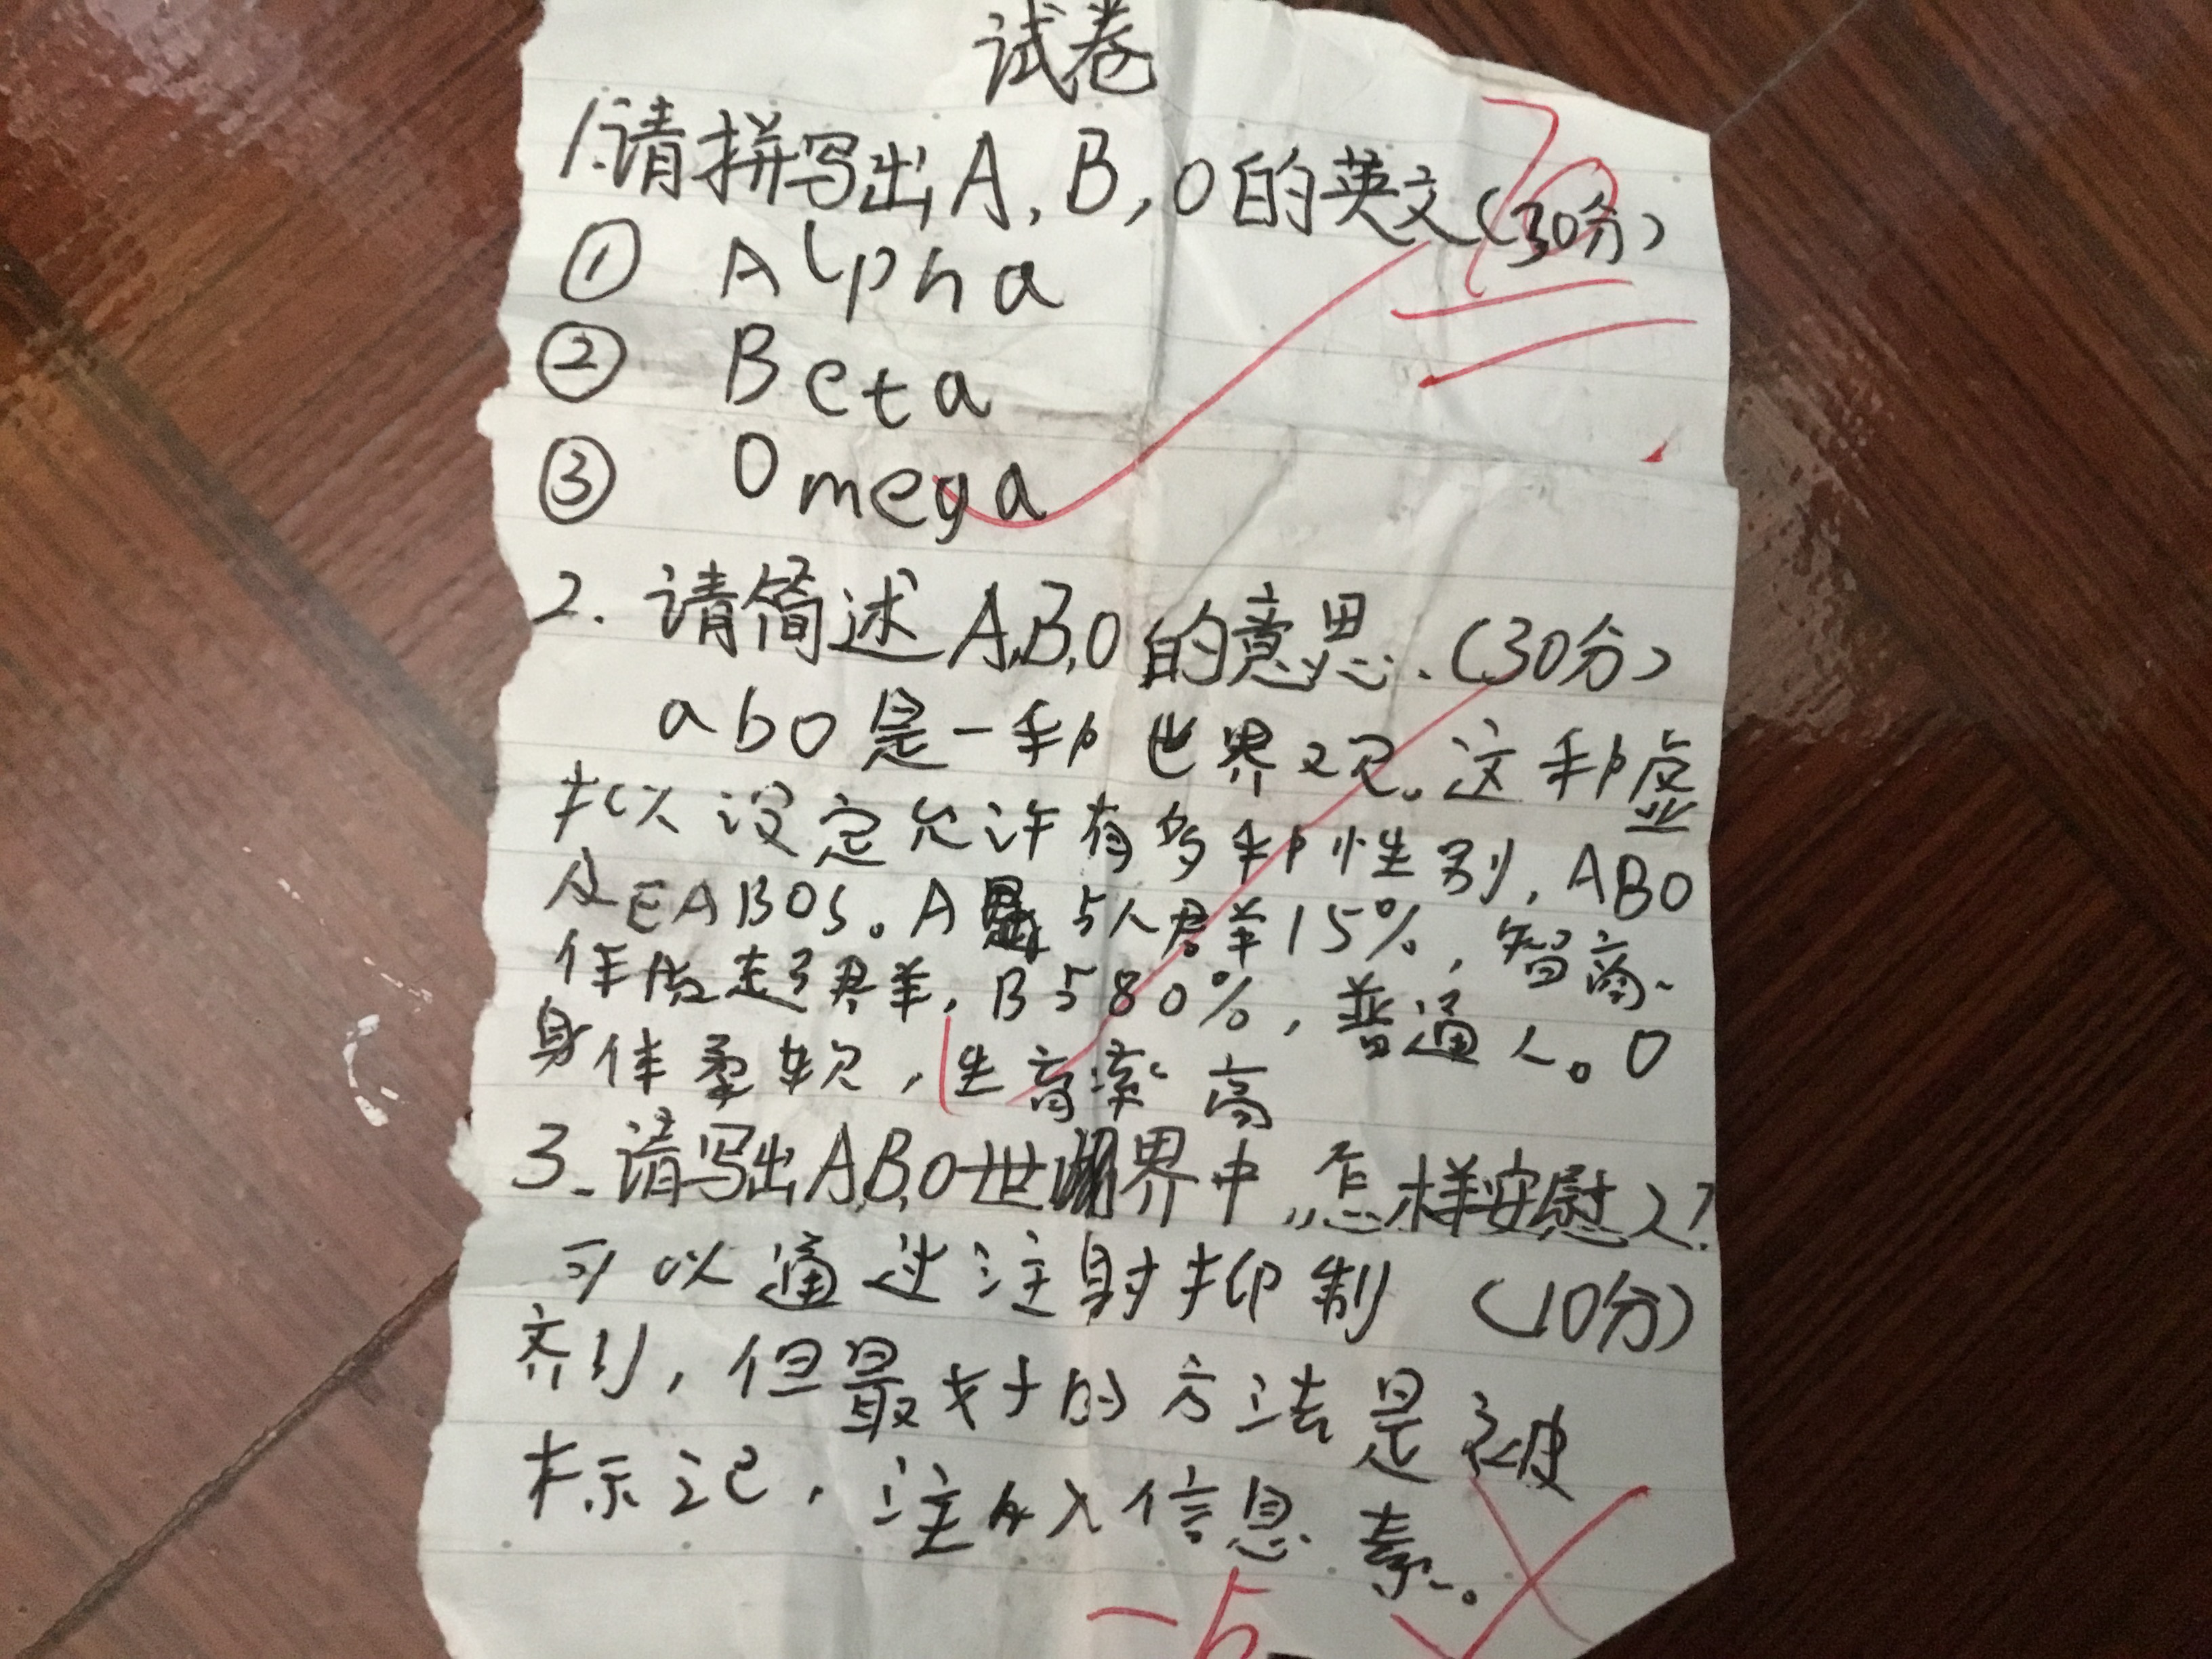 试卷
1.请拼写出A,B,O的英文(30分)
① Alpha
② Beta
③ Omega
2.请简述A,B,O的意思.(30分)
abo是一种世界观。这种虚
拟设定允许有多种性别,ABO
及EABOS。A占人群15%,智商、
体质超群,B占80%,普通人。O
身体柔软,生育率高
3.请写出A,B,O世界中,怎样安慰人?
可以通过注射抑制 (10分)
剂,但最好的方法是被
标记,注入信息素。
-5